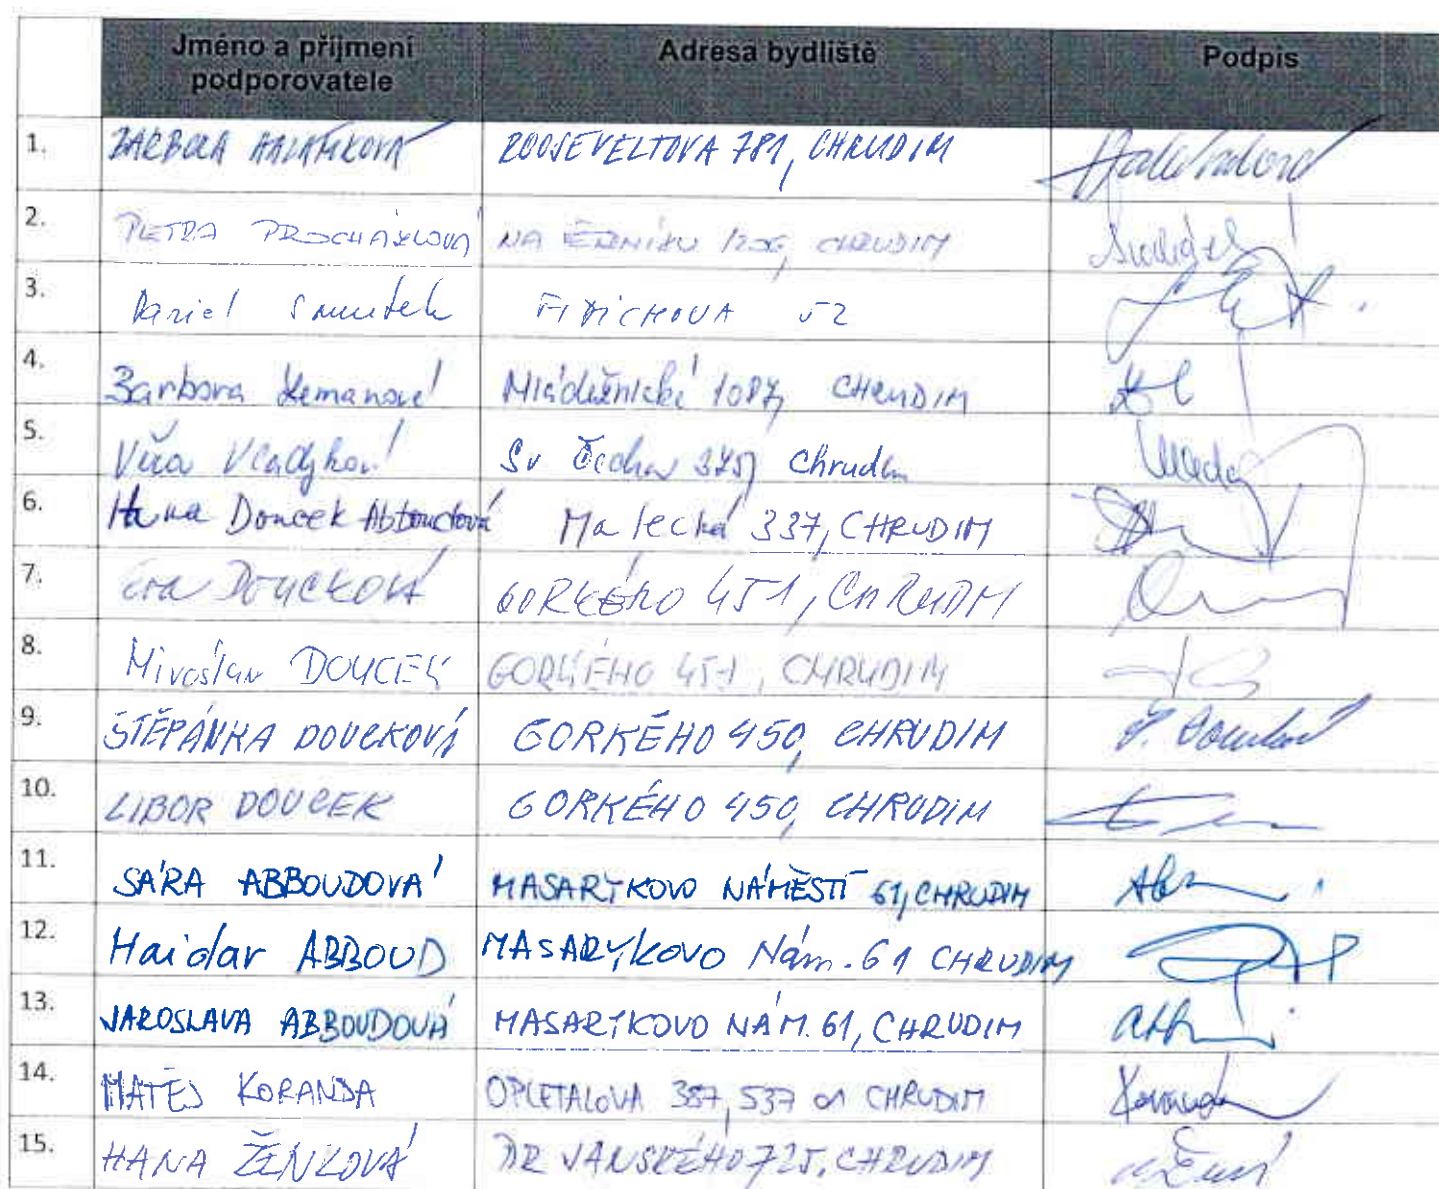 Jméno a příjmení podporovatele Adresa bydliště Podpis
1. BARBORA ROOSEVELTOVA 781, CHRUDIM
2. PETRA PROCHÁZKOVÁ NA CHRUDIM
3. Daniel Smutek FIBICHOVA 52
4. Barbora Zemanová Mládežnická 1087, CHRUDIM
5. Věra Vladyková Sv Čecha 375, Chrudim
6. Hana Doucek Abboudová Malecká 337, CHRUDIM
7. Eva DOUCKOVÁ GORKÉHO 451, CHRUDIM
8. Miroslav DOUCEK GORKÉHO 451, CHRUDIM
9. ŠTĚPÁNKA DOUCKOVÁ GORKÉHO 450, CHRUDIM
10. LIBOR DOUCEK GORKÉHO 450, CHRUDIM
11. SÁRA ABBOUDOVÁ MASARYKOVO NÁMĚSTÍ 61, CHRUDIM
12. Haidar ABBOUD MASARYKOVO Nám. 61 CHRUDIM
13. JAROSLAVA ABBOUDOVÁ MASARYKOVO NÁM. 61, CHRUDIM
14. MATĚJ KORANDA OPLETALOVA 387, 537 01 CHRUDIM Koranda
15. HANA ŽENKOVÁ DR JANSKÉHO 725, CHRUDIM